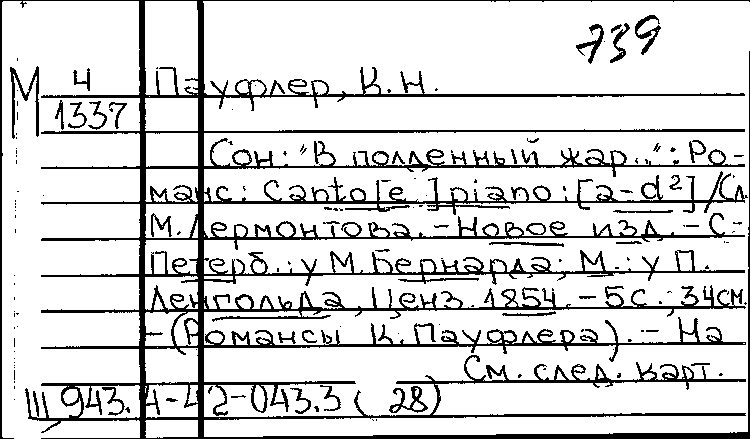 739
М 4 Пауфлер, К.Н.
1337
Сон: "В полденный жар...": Ро-
манс: Canto [e] piano: [a-d²] / Сл.
М. Лермонтова. - Новое изд. - С-
Петерб.: у М. Бернарда; М.: у П.
Ленгольда, Ценз. 1854. - 5с.; 34см.
- (Романсы К. Пауфлера). - На
См. след. карт.
Ш 943.4-42-043.3 (28)